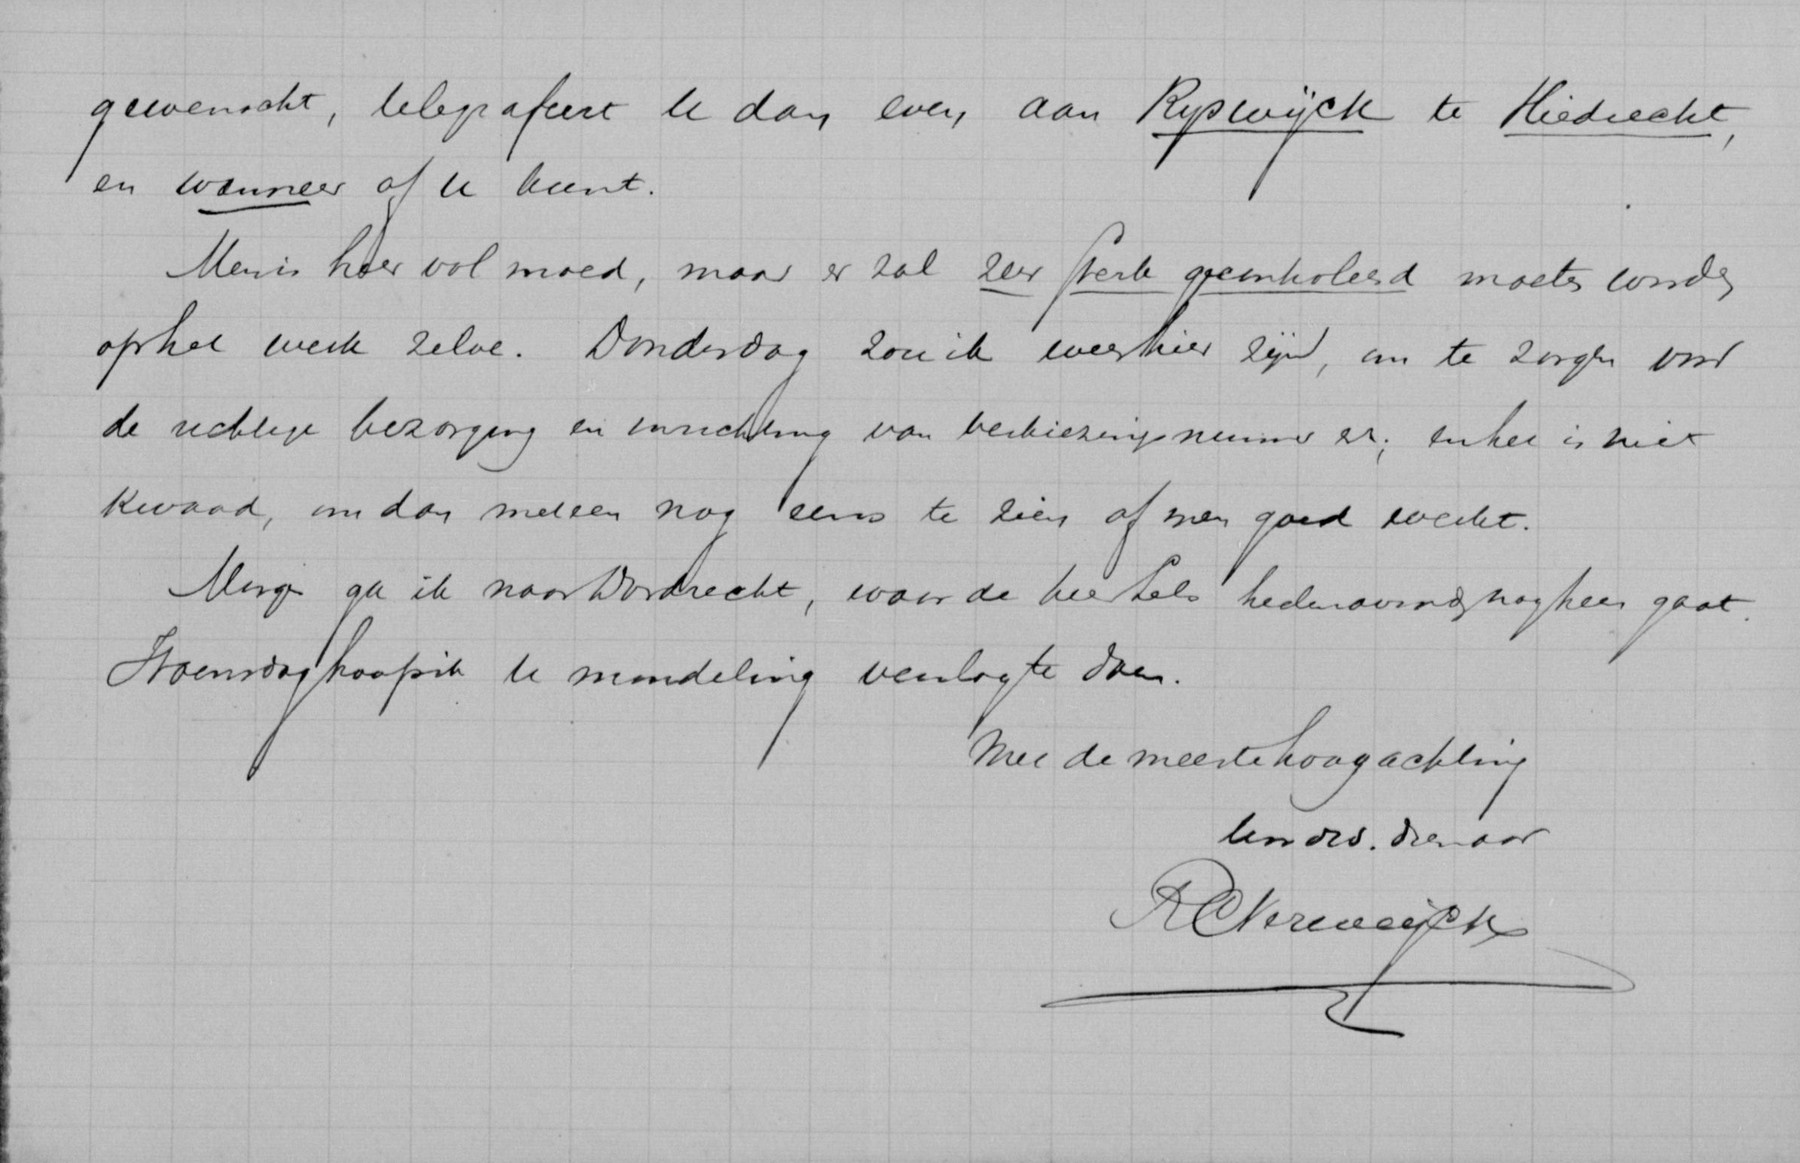 gewenscht, telegrafeert U dan even aan Rijswijck te Sliedrecht,
en wanneer of U kunt.
Men is hier vol moed, maar er zal zeer sterk gecontroleerd moeten worden
op het werk zelve. Donderdag zou ik weer hier zijn, om te zorgen voor
de richtige bezorging en inrichting van verkiezingsnummer; en het is niet
kwaad, om dan meteen nog eens te zien of men goed werkt.
Morgen ga ik naar Dordrecht, waar de heer hedenavond nog heen gaat.
Woensdag hoop ik U mondeling verslag te doen.
Met de meeste hoogachting
Uw dw. dienaar